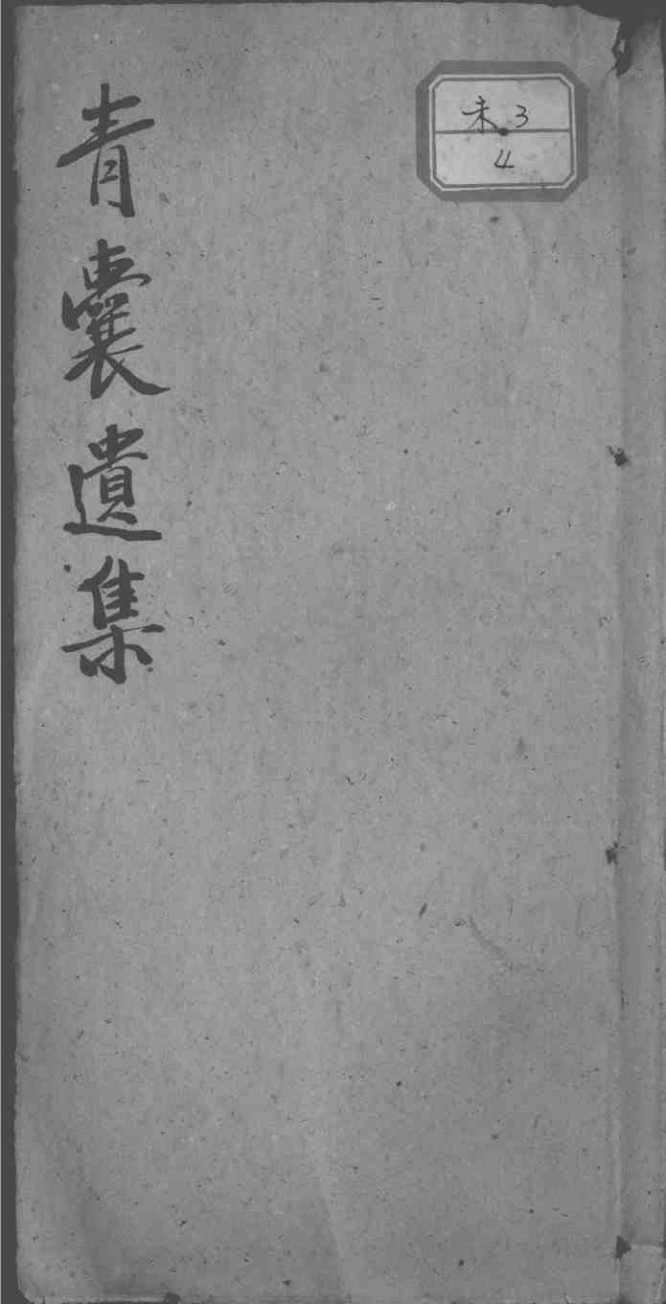 青囊遺集
未.3
4